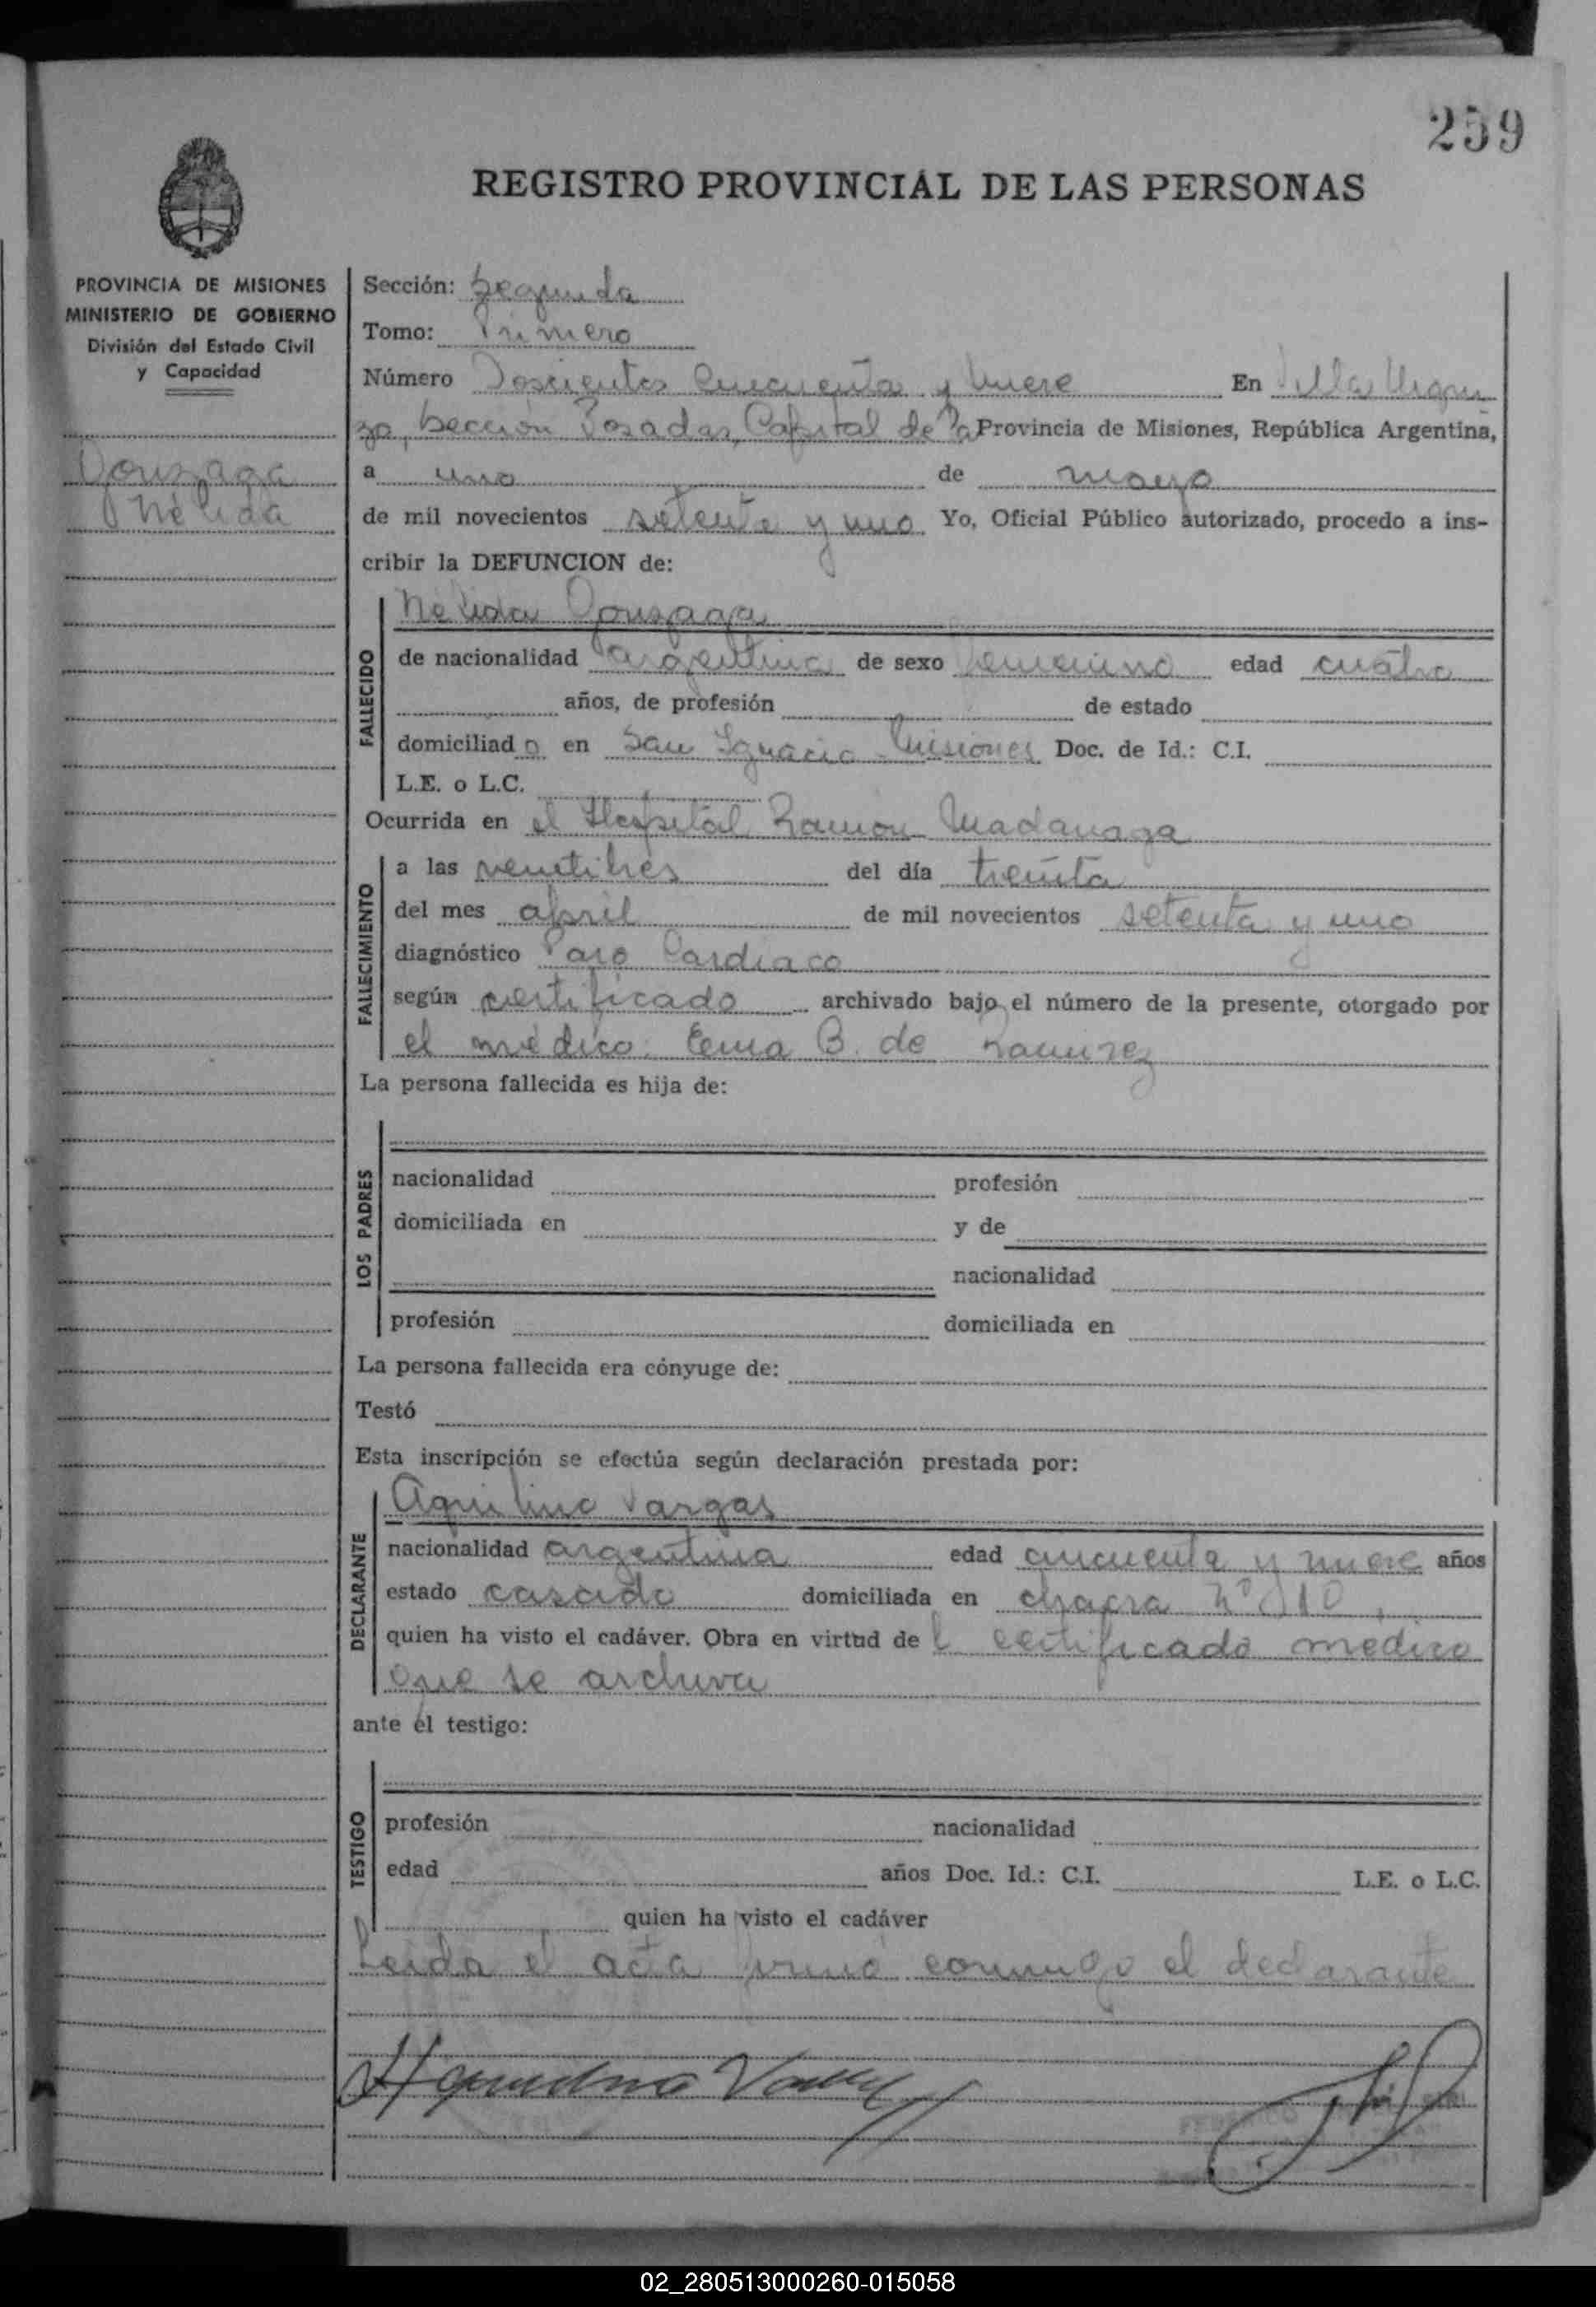 259
REGISTRO PROVINCIAL DE LAS PERSONAS
PROVINCIA DE MISIONES
MINISTERIO DE GOBIERNO
División del Estado Civil
y Capacidad
Gonzaga
Nélida
Sección: Segunda
Tomo: Primero
Número Doscientos Cincuenta y Nueve En Villa Urqui
za, Sección Posadas, Capital de la Provincia de Misiones, República Argentina,
a uno de mayo
de mil novecientos setenta y uno Yo, Oficial Público autorizado, procedo a ins-
cribir la DEFUNCION de:
FALLECIDO
Nélida Gonzaga
de nacionalidad argentina de sexo femenino edad cuatro
años, de profesión de estado
domiciliado en San Ignacio-Misiones Doc. de Id.: C.I.
L.E. o L.C.
Ocurrida en el Hospital Ramón Madariaga
FALLECIMIENTO
a las veintitres del día treinta
del mes abril de mil novecientos setenta y uno
diagnóstico Paro Cardiaco
según certificado archivado bajo el número de la presente, otorgado por
el médico: Ema B. de Ramirez
La persona fallecida es hija de:
LOS PADRES
nacionalidad profesión
domiciliada en y de
nacionalidad
profesión domiciliada en
La persona fallecida era cónyuge de:
Testó
Esta inscripción se efectúa según declaración prestada por:
DECLARANTE
Aquilino Vargas
nacionalidad argentina edad cincuenta y nueve años
estado casado domiciliada en chacra Nº 110
quien ha visto el cadáver. Obra en virtud del certificado médico
que se archiva
ante el testigo:
TESTIGO
profesión nacionalidad
edad años Doc. Id.: C.I. L.E. o L.C.
quien ha visto el cadáver
Leida el acta firmó conmigo el declarante
02_280513000260-015058